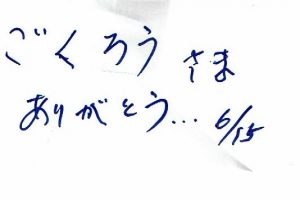 ごくろう さま
ありがとう... 6/15